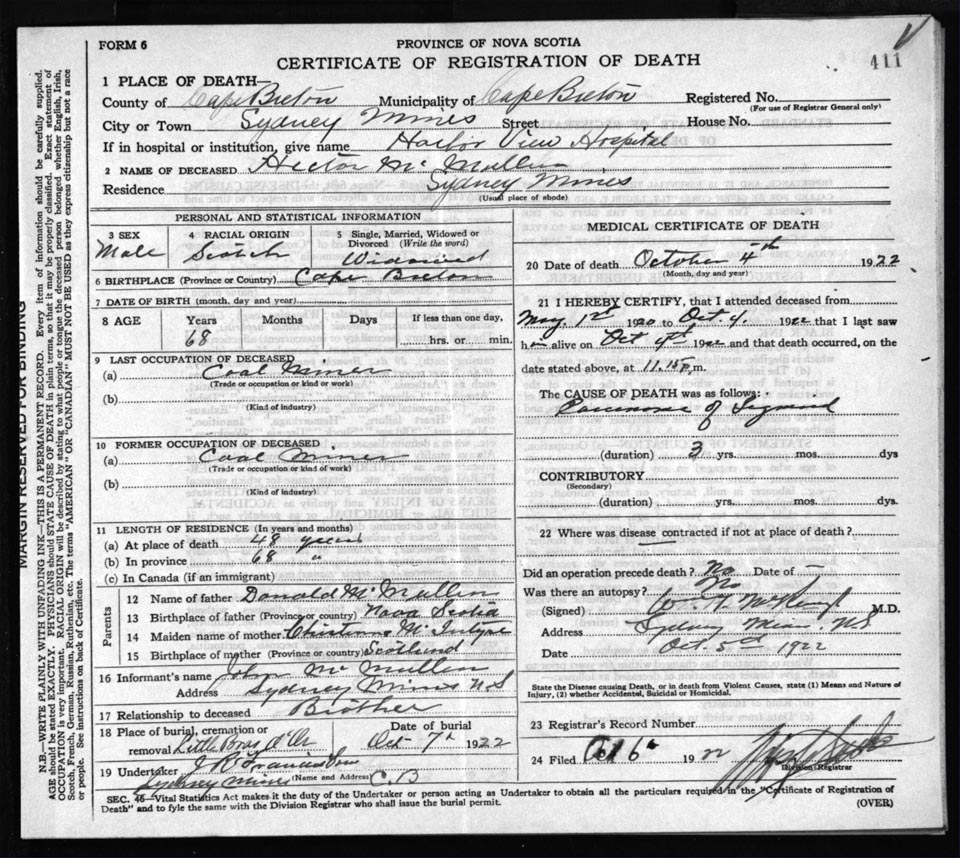 FORM 6
PROVINCE OF NOVA SCOTIA
CERTIFICATE OF REGISTRATION OF DEATH
411
1 PLACE OF DEATH—
County of Cape Breton Municipality of Cape Breton Registered No.
(For use of Registrar General only)
City or Town Sydney Mines Street House No.
If in hospital or institution, give name Harbor View Hospital
2 NAME OF DECEASED Hector Mc Mullin
Residence Sydney Mines
(Usual place of abode)
PERSONAL AND STATISTICAL INFORMATION
3 SEX 4 RACIAL ORIGIN 5 Single, Married, Widowed or Divorced (Write the word)
Male Scotch Widowed
6 BIRTHPLACE (Province or Country) Cape Breton
7 DATE OF BIRTH (month, day and year)
8 AGE Years Months Days If less than one day,
68 hrs. or min.
9 LAST OCCUPATION OF DECEASED
(a) Coal Miner
(Trade or occupation or kind or work)
(b)
(Kind of industry)
10 FORMER OCCUPATION OF DECEASED
(a) Coal Miner
(Trade or occupation or kind or work)
(b)
(Kind of industry)
11 LENGTH OF RESIDENCE (In years and months)
(a) At place of death 48 years
(b) In province 68 "
(c) In Canada (if an immigrant)
Parents
12 Name of father Donald Mc Mullin
13 Birthplace of father (Province or country) Nova Scotia
14 Maiden name of mother Mc Intyre
15 Birthplace of mother (Province or country) Scotland
16 Informant's name John Mc Mullen
Address Sydney Mines N.S
17 Relationship to deceased Brother
18 Place of burial, cremation or Date of burial
removal Little Bras d'Or Oct 7th 1922
19 Undertaker
Sydney Mines (Name and Address) C.B
MEDICAL CERTIFICATE OF DEATH
20 Date of death October 4th 1922
(Month, day and year)
21 I HEREBY CERTIFY, that I attended deceased from
May 1st 1920 to Oct 4. 1922 that I last saw
him alive on Oct 4th 1922 and that death occurred, on the
date stated above, at 11.15 p.m.
The CAUSE OF DEATH was as follows:
of Sigmoid
(duration) 3 yrs. mos. dys
CONTRIBUTORY
(Secondary)
(duration) yrs. mos. dys.
22 Where was disease contracted if not at place of death?
Did an operation precede death? No Date of —
Was there an autopsy? No
(Signed) M.D.
Address Sydney Mines N.S
Date Oct. 5th 1922
State the Disease causing Death, or in death from Violent Causes, state (1) Means and Nature of
Injury, (2) whether Accidental, Suicidal or Homicidal.
23 Registrar's Record Number
24 Filed Oct 6 1922
Division Registrar
SEC. 46—Vital Statistics Act makes it the duty of the Undertaker or person acting as Undertaker to obtain all the particulars required in the "Certificate of Registration of
Death" and to fyle the same with the Division Registrar who shall issue the burial permit.
(OVER)
MARGIN RESERVED FOR BINDING
N.B.—WRITE PLAINLY WITH UNFADING INK—THIS IS A PERMANENT RECORD. Every item of information should be carefully supplied.
AGE should be stated EXACTLY. PHYSICIANS should STATE CAUSE OF DEATH in plain terms, so that it may be properly classified. Exact statement of
OCCUPATION is very important. RACIAL ORIGIN will be described by stating to what people or tongue the deceased person belonged, whether English, Irish,
Scotch, French, German, Russian, Ruthenian, etc. The terms "AMERICAN" OR "CANADIAN" MUST NOT BE USED as they express citizenship but not a race
or people. See instructions on back of Certificate.